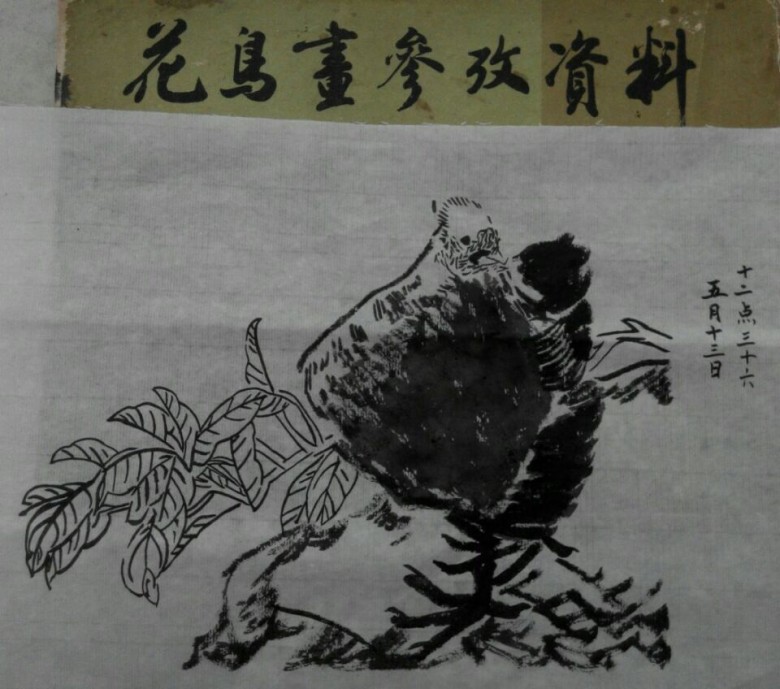 花鳥畫參攷資料
十二点三十六
五月十三日